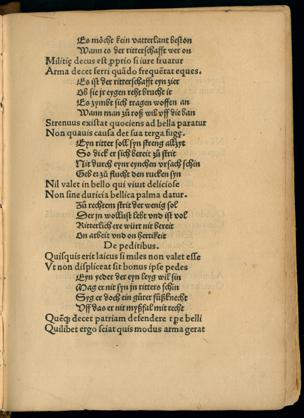 Es möcht kein vatterlant beston
Wann es der ritterschafft wer on
Militię decus est pprio si iure fruatur
Arma decet ferri quādo frequētat eques.
Es ist der ritterschafft eyn zier
Ob sie jr eygen reht brucht ir
Es zymbt sich tragen woffen an
Wann man zů roß wil vff die ban
Strenuus existat quociens ad bella paratur
Non quauis causa det sua terga fugę.
Eyn ritter soll syn streng allzyt
So dick er sich bereit zů strit
Nit durch eynr eynchen vrsach schin
Geb er zů flucht den rucken syn
Nil valet in bello qui viut deliciose
Non sine duricia bellica palma datur.
Zů rechtem strit der wenig sol
Der jn wollust lebt vnd ist vol
Ritterlich ere würt nit bereit
On arbeit vnd on hertikeit
De peditibus.
Quisquis erit laicus si miles non valet esse
Vt non displiceat sit bonus ipse pedes
Eyn yeder der eyn leyg wil sin
Mag er nit syn jn ritters schin
Syg er doch ein gůter fůßknecht
Vff das er nit myßfal mit recht
Quēq; decet patriam defendere tpe belli
Quilibet ergo sciat quis modus arma gerat